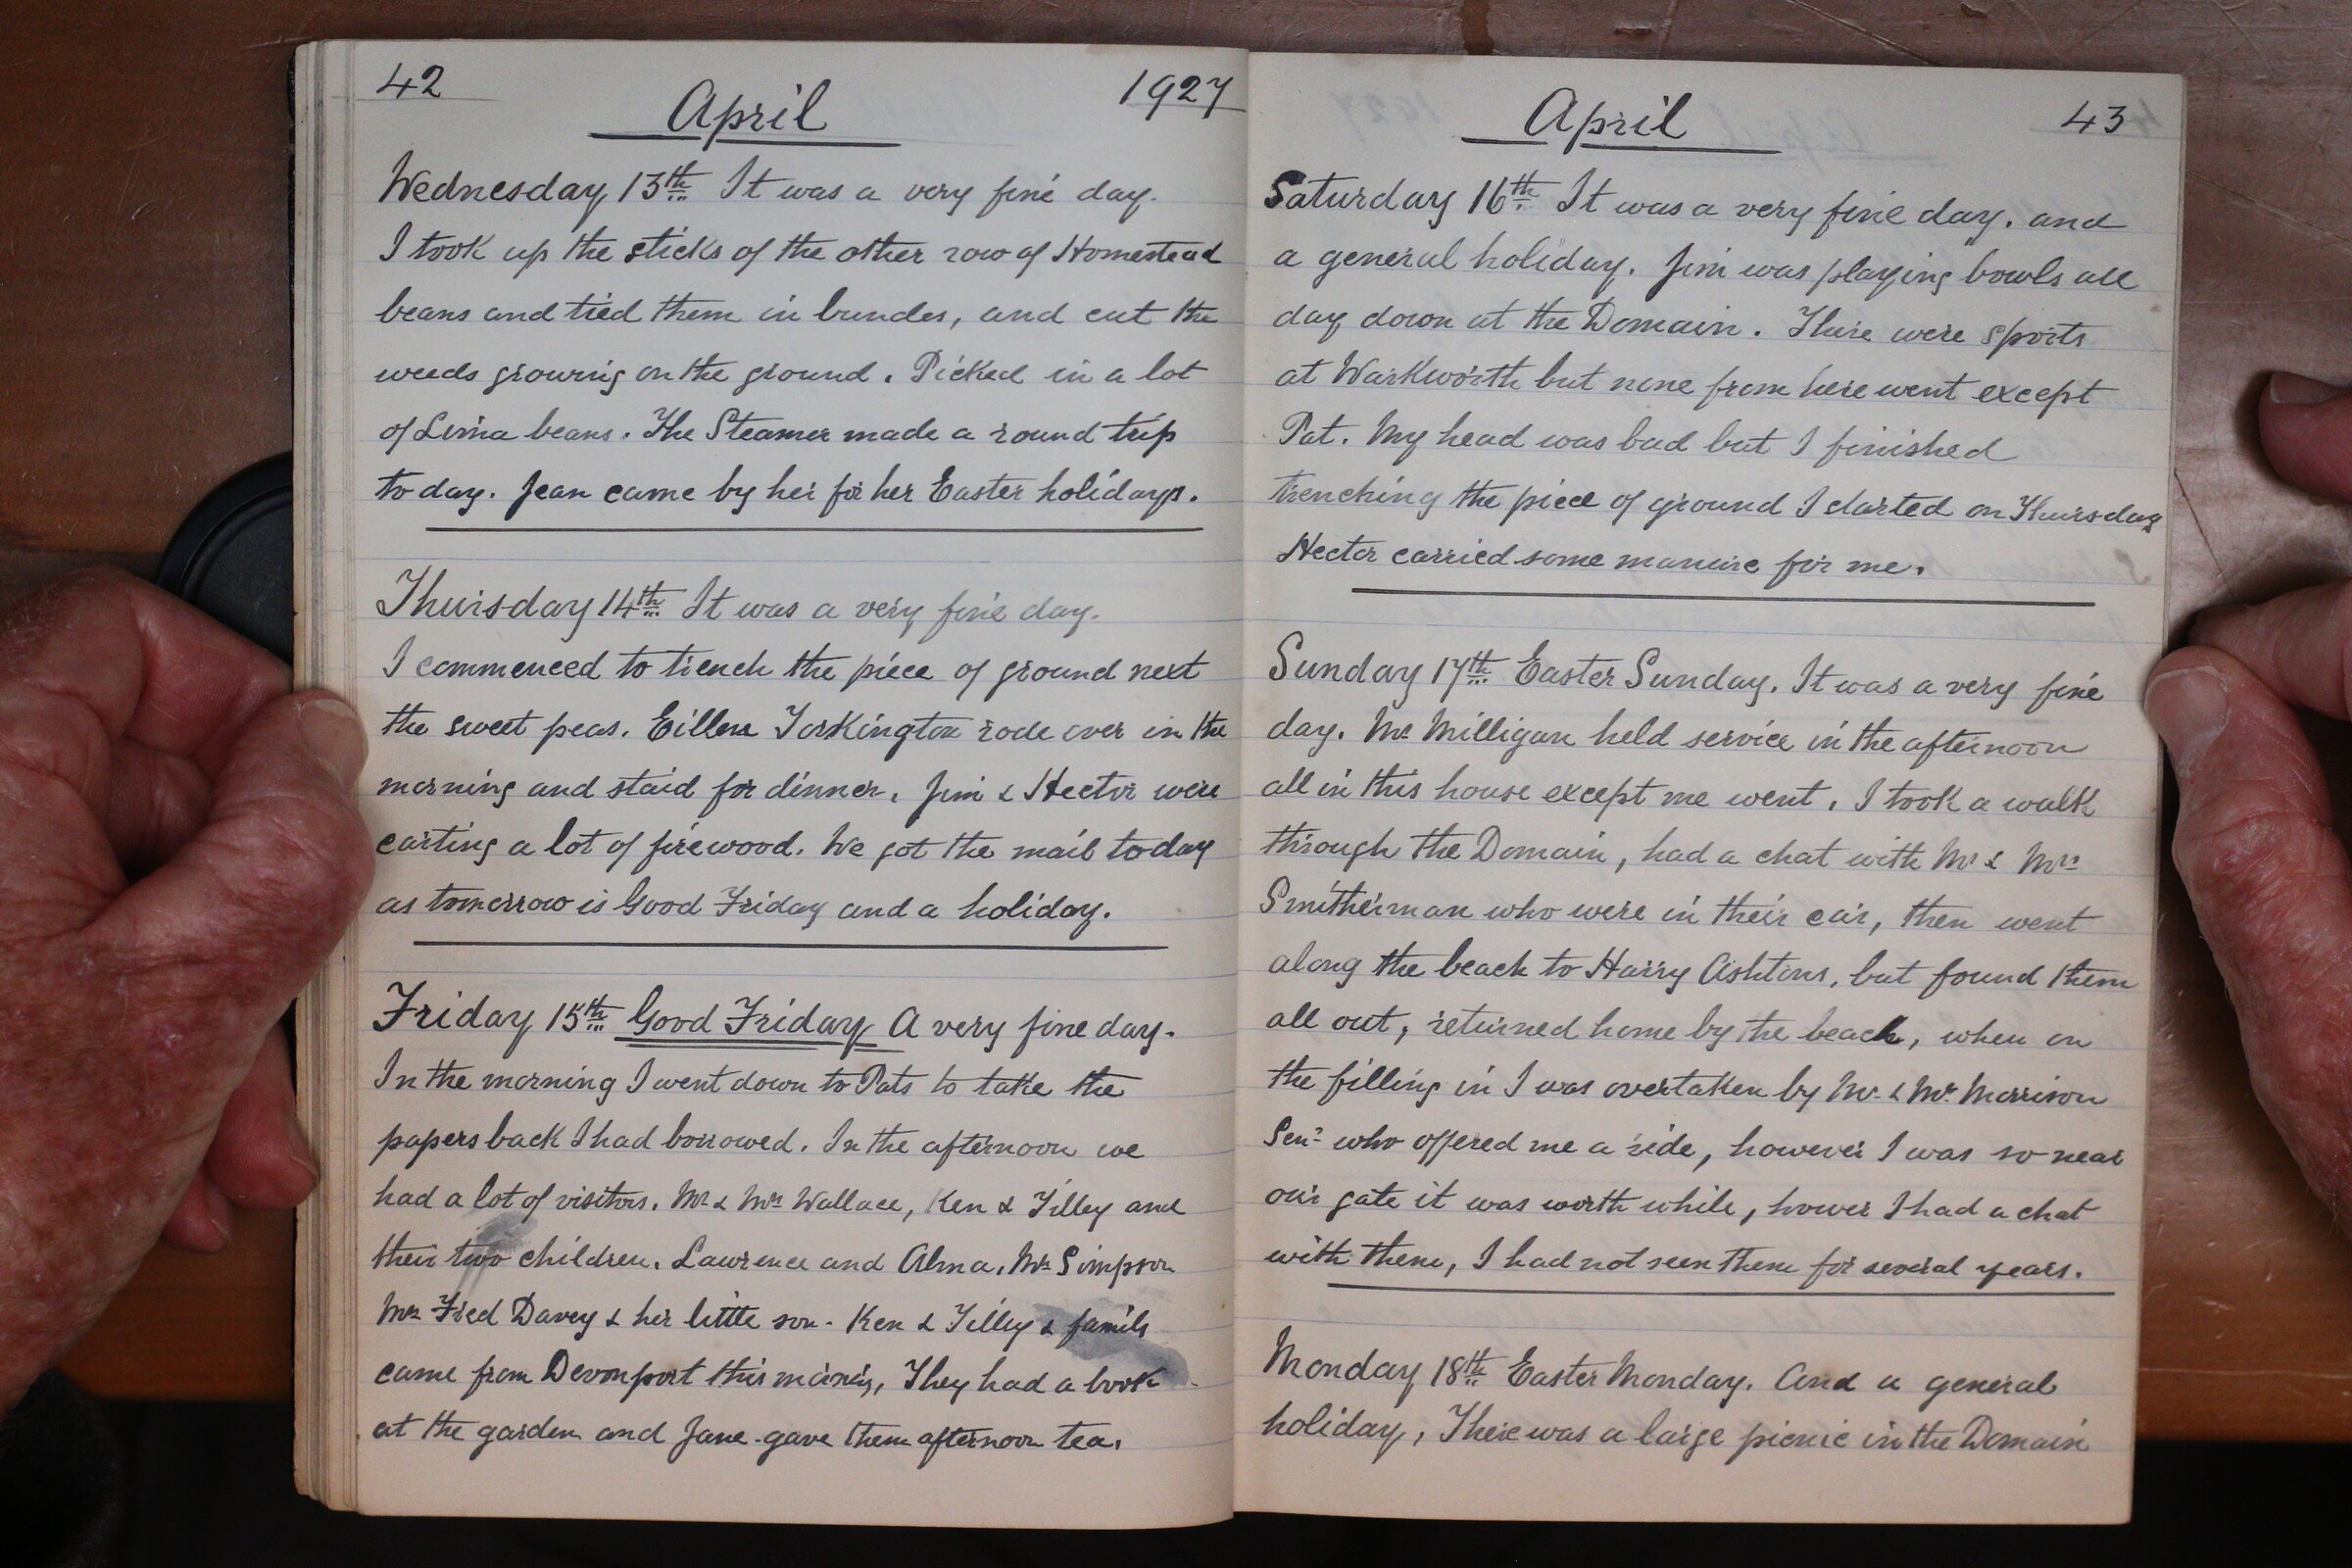 42
April
1927
Wednesday 13th It was a very fine day.
I took up the sticks of the other row of Homestead
beans and tied them in bundes, and cut the
weeds growing on the ground. Picked in a lot
of Lima beans. The Steamer made a round trip
to day. Jean came by her for her Easter holidays.
Thursday 14th It was a very fine day.
I commenced to trench the piece of ground next
the sweet peas. Eillene Torkington rode over in the
morning and staid for dinner. Jim & Hector were
carting a lot of firewood. We got the mail today
as tomorrow is Good Friday and a holiday.
Friday 15th Good Friday A very fine day.
In the morning I went down to Pats to take the
papers back I had borrowed. In the afternoon we
had a lot of visitors. Mr & Mrs Wallace, Ken & Tilley and
their two children. Lawrence and Alma. Mr Simpson
Mrs Fred Davey & her little son. Ken & Tilley & family
came from Devonport this morning, They had a look
at the garden and Jane gave them afternoon tea.
April
43
Saturday 16th It was a very fine day. and
a general holiday. Jim was playing bowls all
day down at the Domain. There were sports
at Warkworth but none from here went except
Pat. My head was bad but I finished
trenching the piece of ground I started on Thursday
Hector carried some manure for me.
Sunday 17th Easter Sunday. It was a very fine
day. Mr Milligan held service in the afternoon
all in this house except me went. I took a walk
through the Domain, had a chat with Mr & Mrs
Smitherman who were in their car, then went
along the beach to Harry Ashtons, but found them
all out, returned home by the beach, when on
the filling in I was overtaken by Mr. & Mr. Morrison
Senr who offered me a ride, however I was so near
our gate it was worth while, hower I had a chat
with them, I had not seen them for several years.
Monday 18th Easter Monday. And a general
holiday, There was a large picnic in the Domain